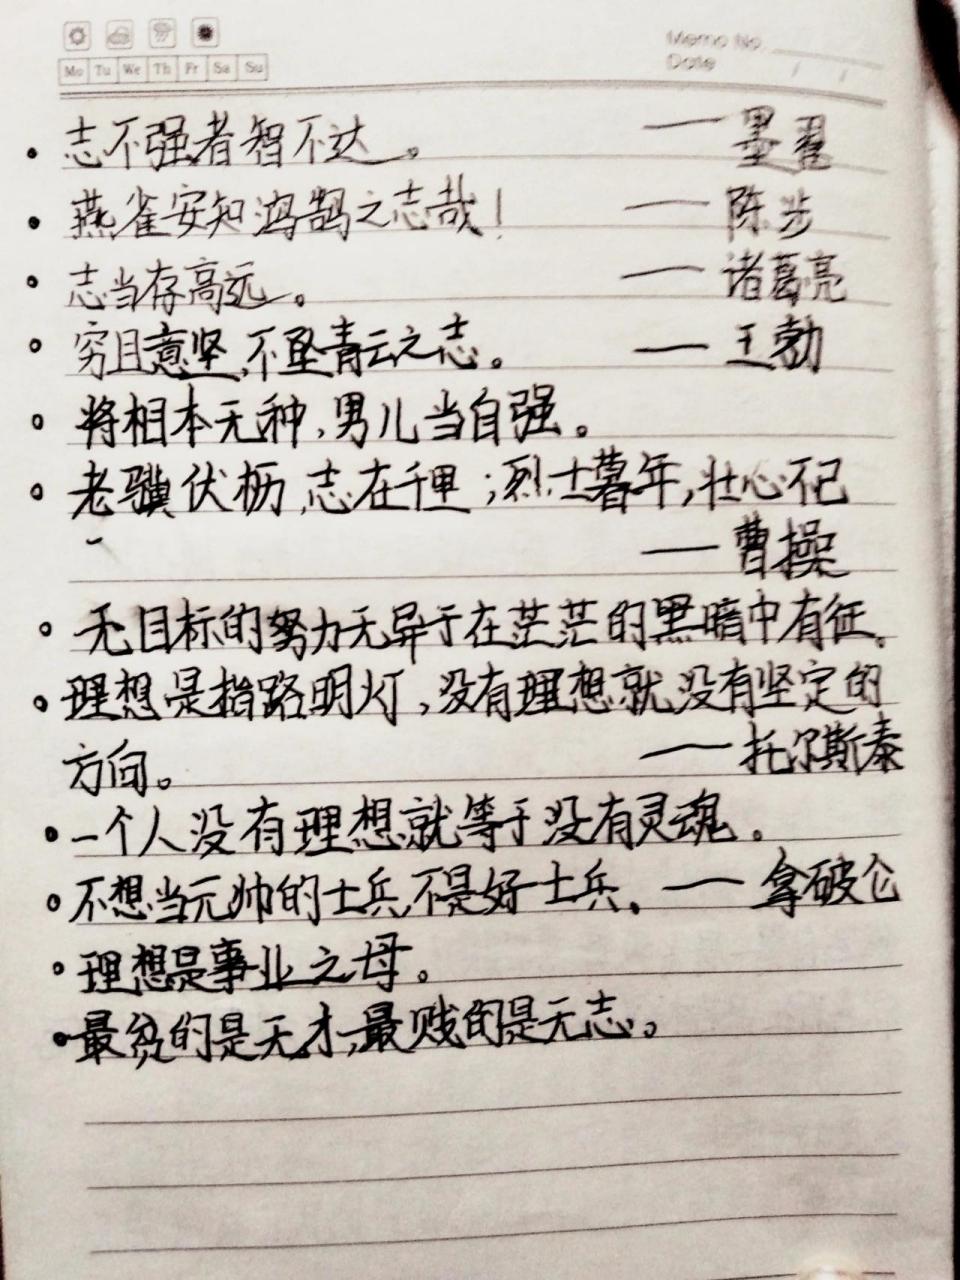 Memo No.
Date / /
Mo Tu We Th Fr Sa Su
志不强者智不达。 ——墨翟
燕雀安知鸿鹄之志哉! ——陈涉
志当存高远。 ——诸葛亮
穷且意坚,不坠青云之志。 ——王勃
将相本无种,男儿当自强。
老骥伏枥,志在千里;烈士暮年,壮心不已
——曹操
无目标的努力无异于在茫茫的黑暗中有征。
理想是指路明灯,没有理想就没有坚定的
方向。 ——托尔斯泰
一个人没有理想就等于没有灵魂。
不想当元帅的士兵,不是好士兵。——拿破仑
理想是事业之母。
最贫的是无才,最贱的是无志。